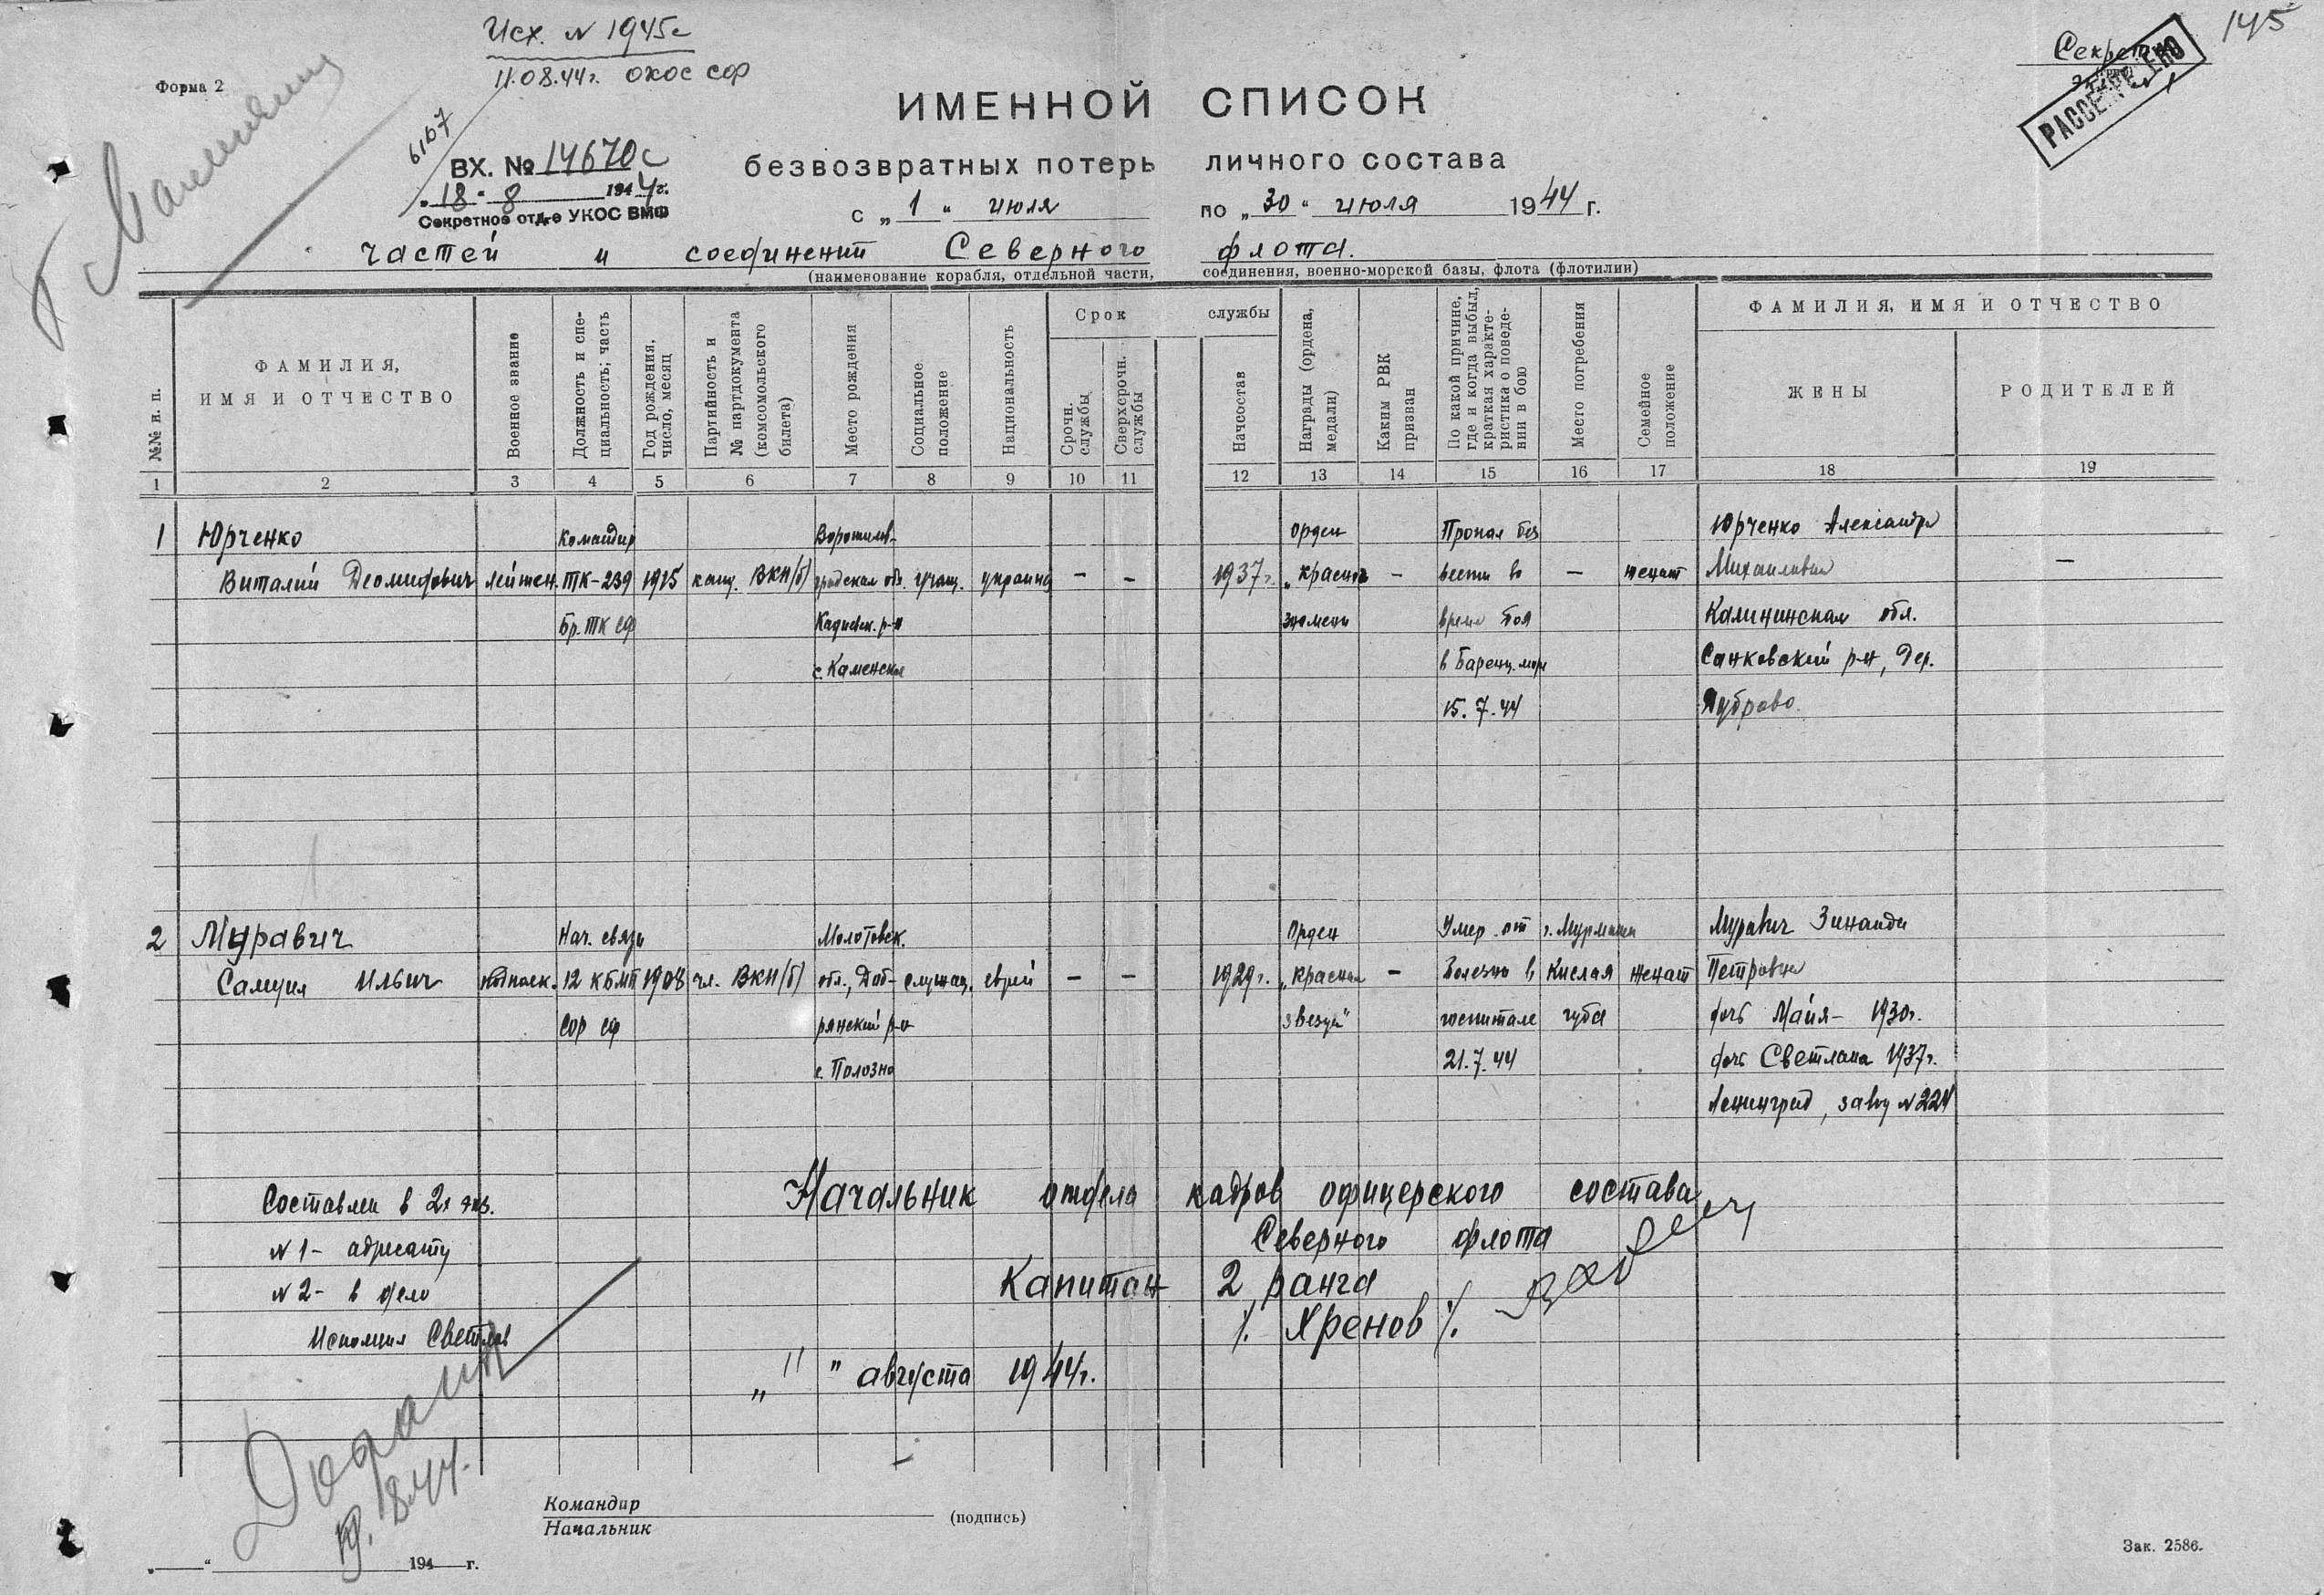 Исх. № 1945с
11.08.44г. ОКОС СФ
145
Секретно
РАССЕКРЕЧЕНО
Форма 2
6167
ИМЕННОЙ СПИСОК
ВХ. № 14670с
безвозвратных потерь личного состава
„18“ 8 1944г.
Секретное отд-е УКОС ВМФ
с „1“ июля по „30“ июля 1944 г.
частей и соединений Северного флота.
(наименование корабля, отдельной части, соединения, военно-морской базы, флота (флотилии)
№№ п. п.
ФАМИЛИЯ,
ИМЯ И ОТЧЕСТВО
Военное звание
Должность и спе-
циальность; часть
Год рождения,
число, месяц
Партийность и
№ партдокумента
(комсомольского
билета)
Место рождения
Социальное
положение
Национальность
Срок службы
Срочн.
службы
Сверхсрочн.
службы
Начсостав
Награды (ордена,
медали)
Каким РВК
призван
По какой причине,
где и когда выбыл,
краткая характе-
ристика о поведе-
нии в бою
Место погребения
Семейное
положение
ФАМИЛИЯ, ИМЯ И ОТЧЕСТВО
ЖЕНЫ
РОДИТЕЛЕЙ
1 2 3 4 5 6 7 8 9 10 11 12 13 14 15 16 17 18 19
1 Юрченко командир Ворошилов- орден Пропал без Юрченко Александра
Виталий Деомидович лейтен. ТК-239 1915 канд. ВКП(б) градская об. учащ. украинец - - 1937г. „Красного - вести во - женат Михайловна -
Бр. ТК СФ Кадиевск. р-н знамени время боя Калининская обл.
с. Каменска в Баренц. море Санковский р-н, дер.
15.7.44 Дуброво.
2 Муравич Нач. связи Молотовск. орден Умер от г. Мурманск Муравич Зинаида
Самуил Ильич подполк. 12 КБМП 1908 чл. ВКП(б) обл., Доб- служащ. еврей - - 1929г. „Красная - болезни в Кислая женат Петровна
СОР СФ рянский р-н звезда“ госпитале губа дочь Майя - 1930г.
с. Полозно 21.7.44 дочь Светлана 1937г.
Ленинград, завод №224
Составлен в 2х экз. Начальник отдела кадров офицерского состава
№ 1 - адресату Северного флота
№ 2 - в дело Капитан 2 ранга
Исполнил Светлов /. Хренов /.
„11“ августа 1944г.
19.8.44.
Командир
Начальник
(подпись)
„ “ 194 г.
Зак. 2586.